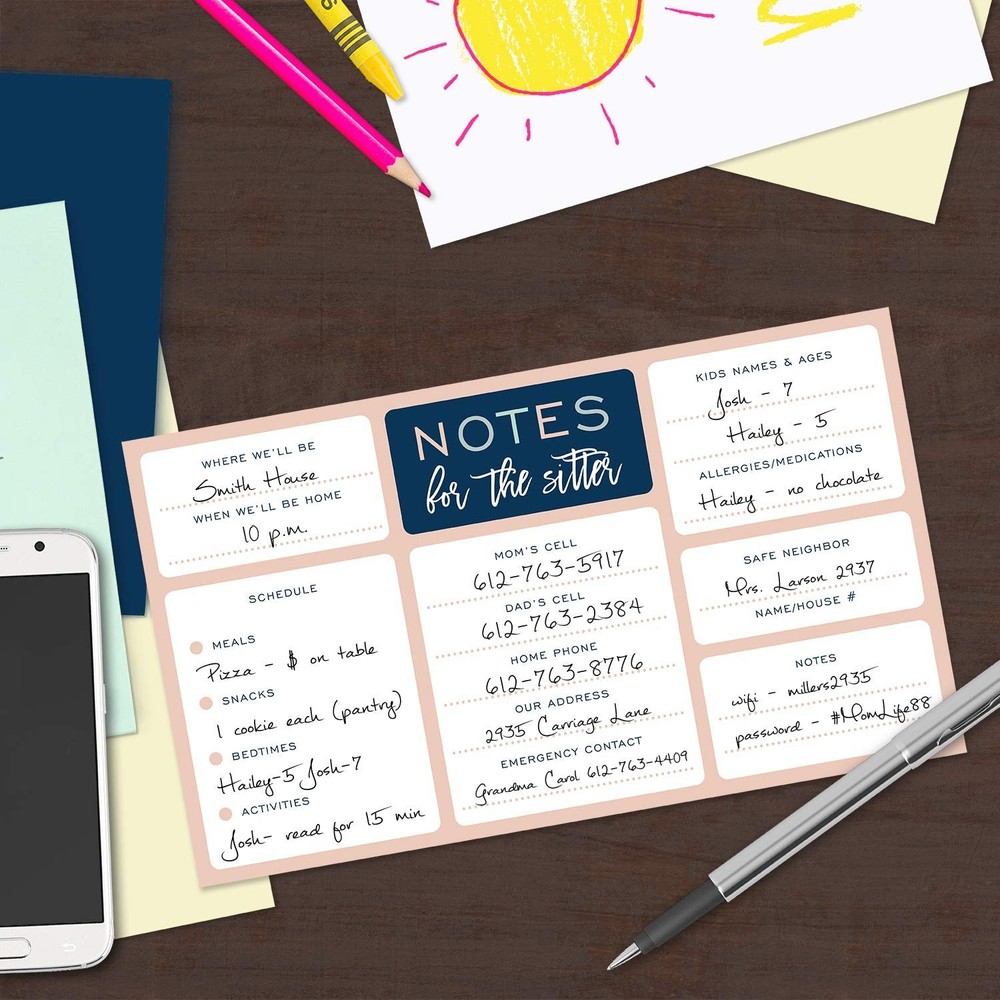 WHERE WE'LL BE
Smith House
WHEN WE'LL BE HOME
10 p.m.
SCHEDULE
MEALS
Pizza - $ on table
SNACKS
1 cookie each (pantry)
BEDTIMES
Hailey-5 Josh-7
ACTIVITIES
Josh- read for 15 min
NOTES
for the sitter
MOM'S CELL
612-763-5917
DAD'S CELL
612-763-2384
HOME PHONE
612-763-8776
OUR ADDRESS
2935 Carriage Lane
EMERGENCY CONTACT
Grandma Carol 612-763-4409
KIDS NAMES & AGES
Josh - 7
Hailey - 5
ALLERGIES/MEDICATIONS
Hailey - no chocolate
SAFE NEIGHBOR
Mrs. Larson 2937
NAME/HOUSE #
NOTES
wifi - millers2935
password - #MomLife88